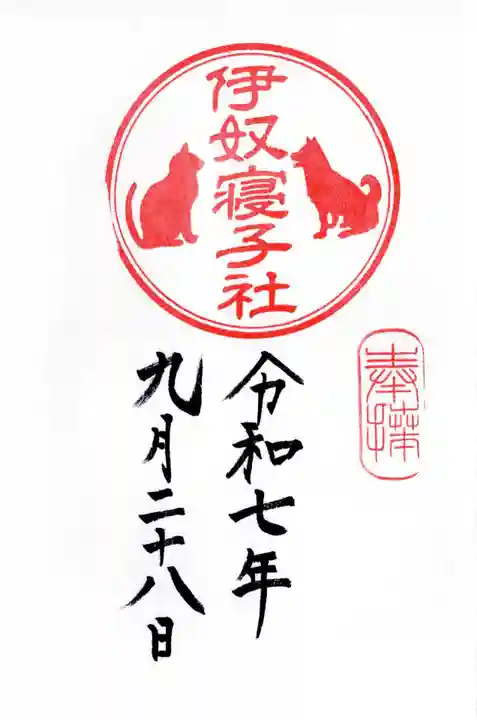 奉拝
伊奴寝子社
令和七年
九月二十八日